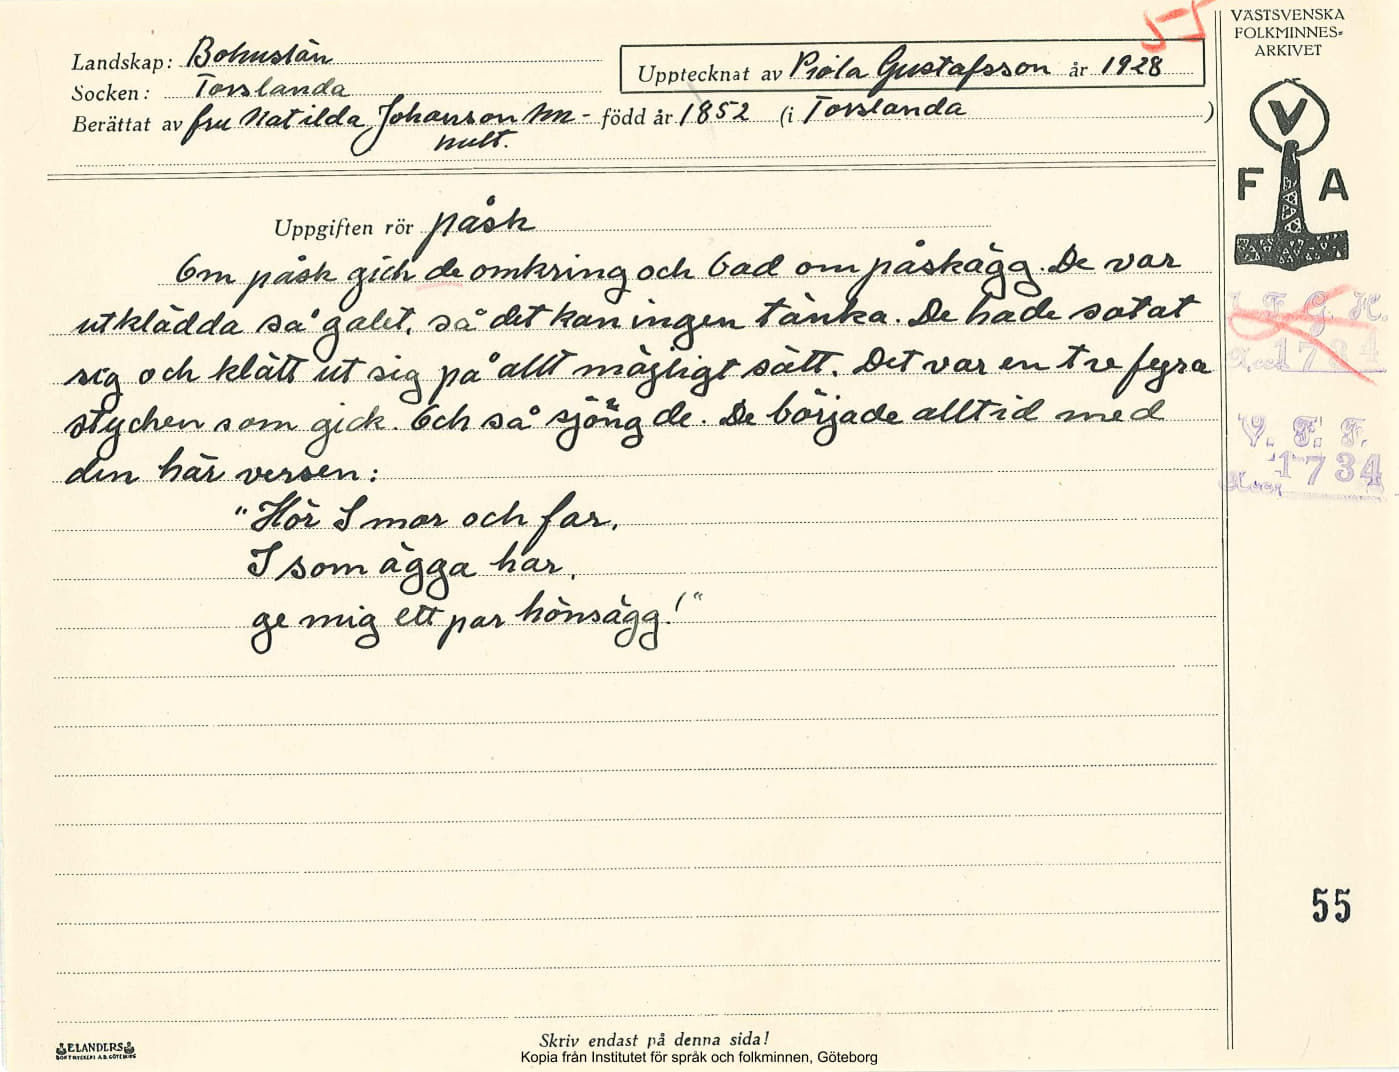 VÄSTSVENSKA
FOLKMINNES-
ARKIVET
Landskap: Bohuslän
Upptecknat av Piola Gustafsson år 1928
Socken: Torslanda
Berättat av fru Matilda Johanson - född år 1852 (i Torslanda )
V
F A
Uppgiften rör påsk
Om påsk gick de omkring och bad om påskägg. De var
utklädda så galet, så det kan ingen tänka. De hade sotat
sig och klätt ut sig på allt möjligt sätt. Det var en tre fyra
stycken som gick. Och så sjöng de. De började alltid med
den här versen:
"Hör I mor och far,
I som ägga har,
ge mig ett par hönsägg!"
I. F. G. H.
Acc. 1734
V. F. F.
Acc. 1734
55
ELANDERS
BOKTRYCKERI A.B. GÖTEBORG
Skriv endast på denna sida!
Kopia från Institutet för språk och folkminnen, Göteborg